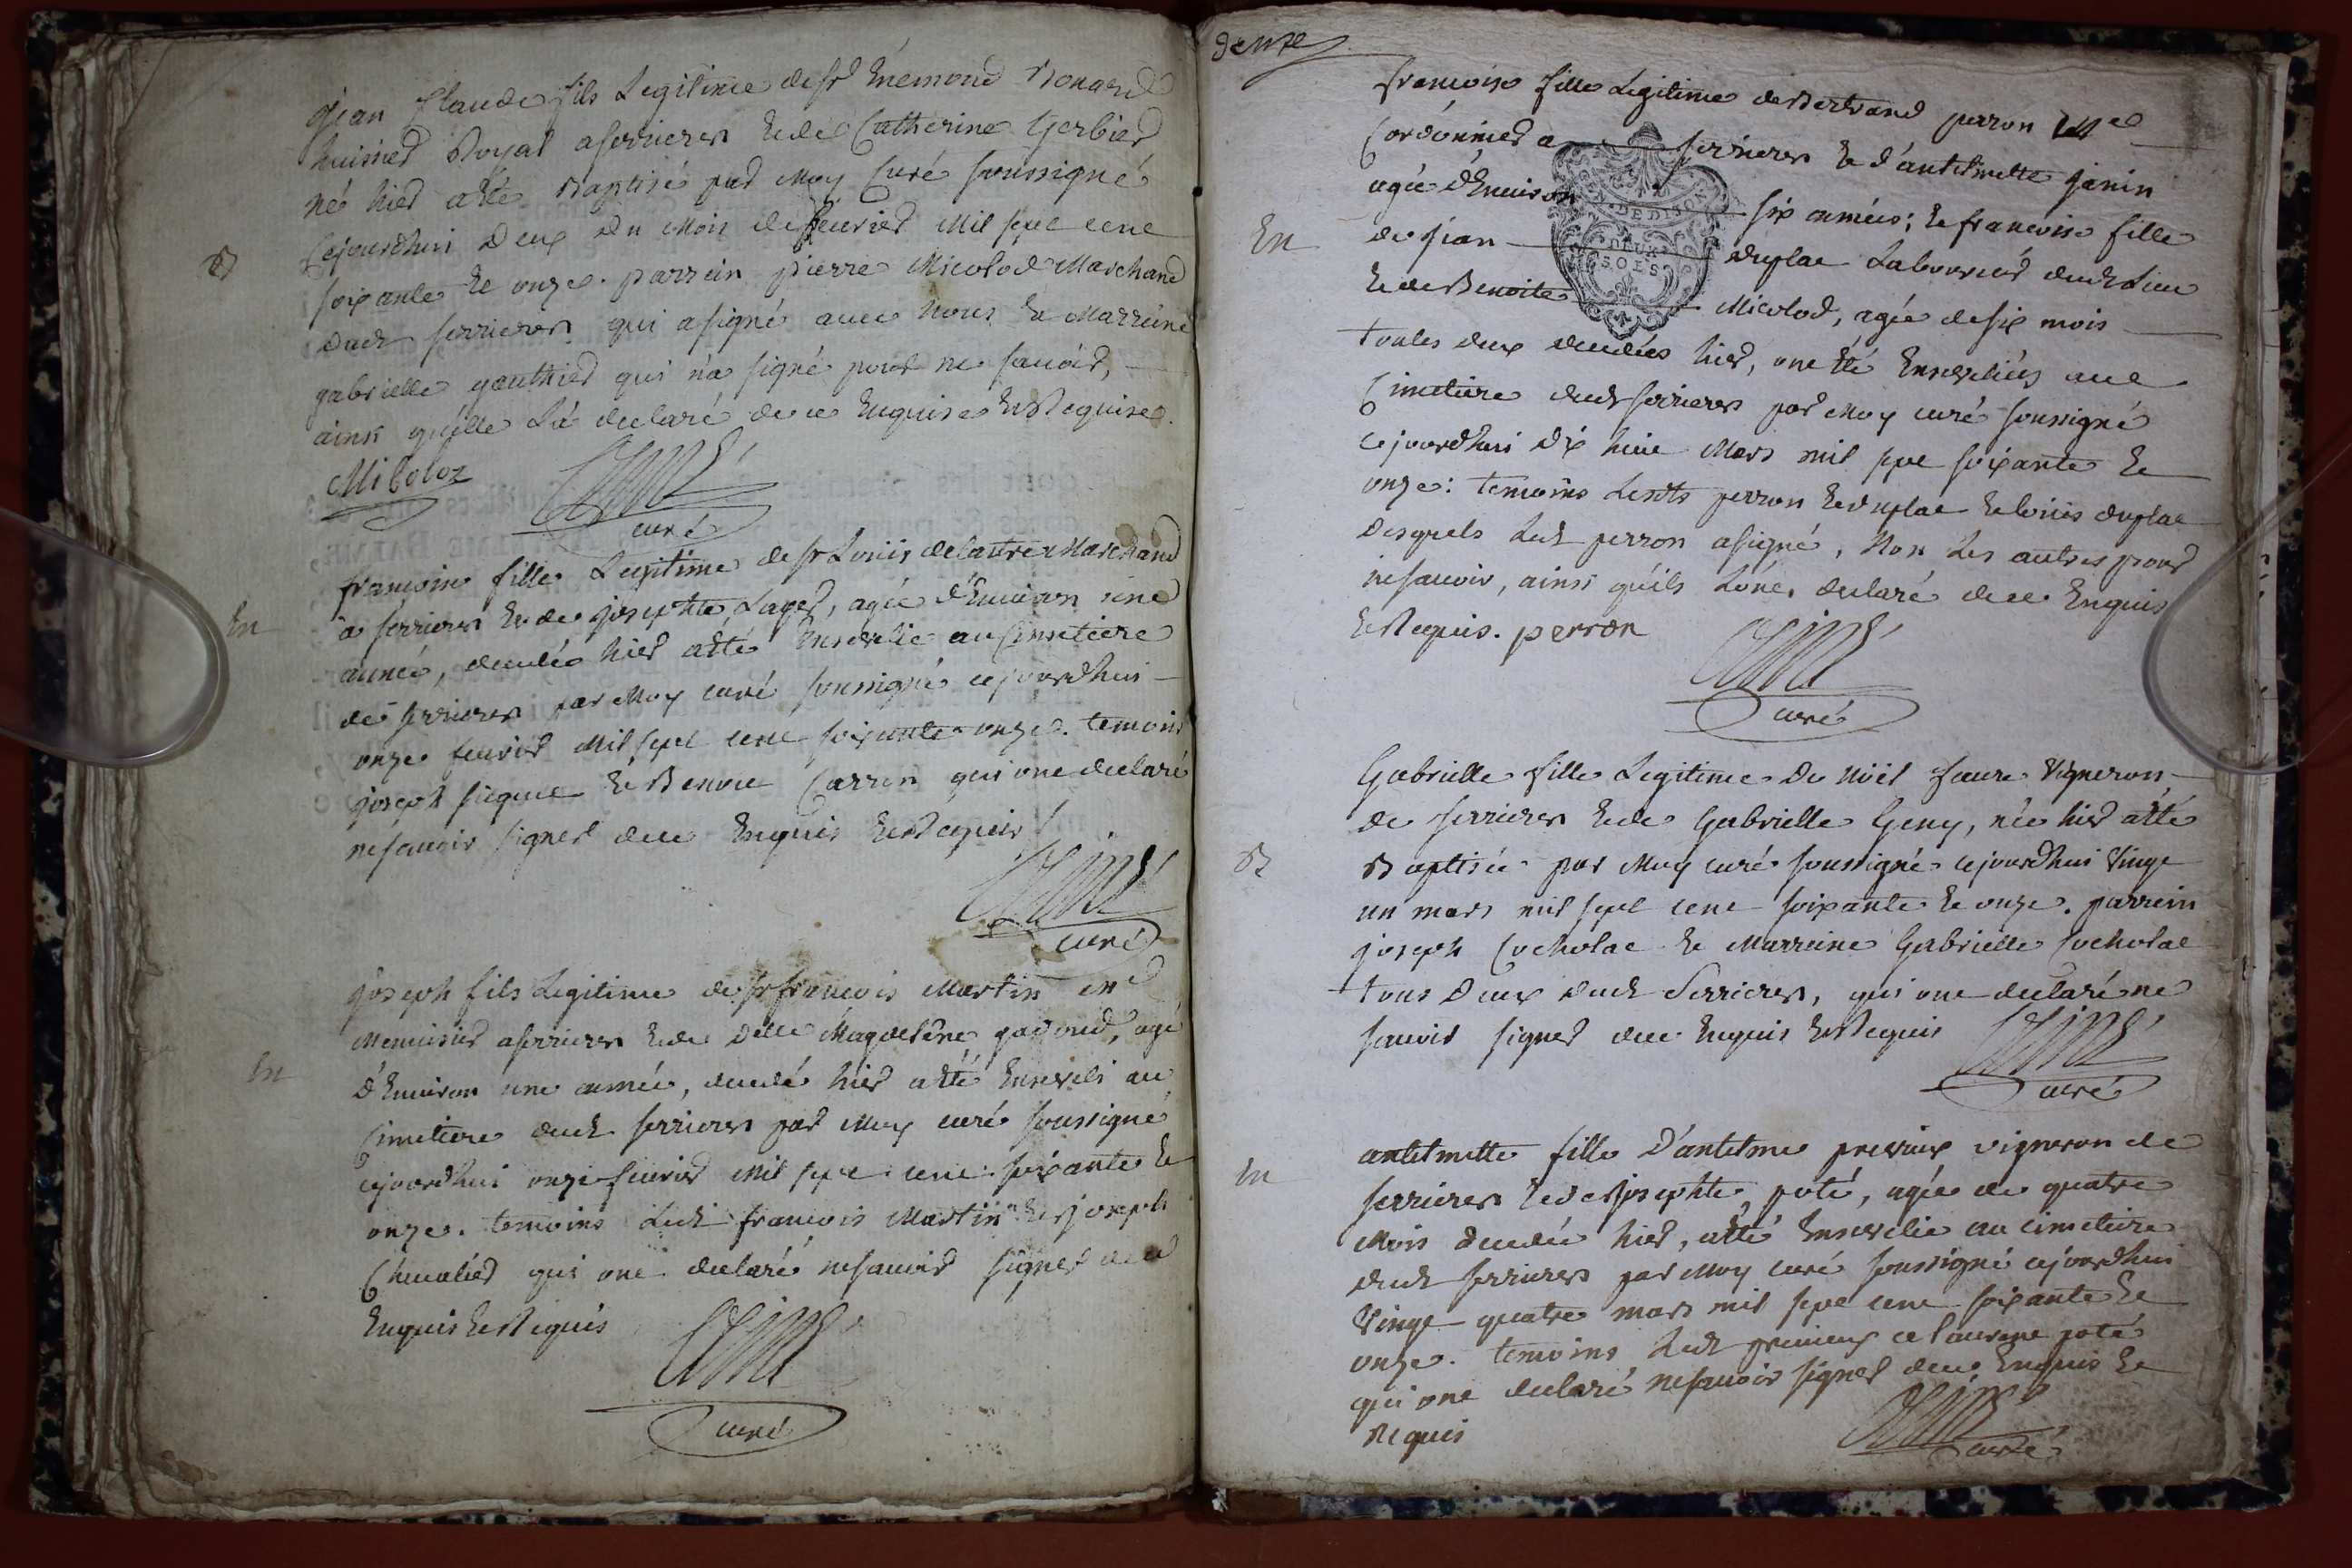 jean Claude fils Legitime de sr Enemond Bonard
huissier Royal a serrieres et de Catherine Gerbier
né hier a été Baptisé par Moy Curé soussigné
B
Cejourdhui Deux du Mois de feurier Mil sept cent
soixante et onze. parrein pierre Micolod Marchand
dudt serrieres qui a signé auec Nous et Marreine
gabrielle gauthier qui n'a signé pour ne sauoir,
ainsi qu'elle L'a declaré de ce Enquise et Requise.
Micoloz
curé
francoise fille Legitime de sr Louis delautre Marchand
En
a serrieres et de josephte Lager, agée d'Enuiron une
année, decedée hier a été Enseuelie au Cimetiere
de serrieres par Moy curé soussigné cejourdhui
onze feurier Mil sept cent soixante onze. temoins
joseph et Benoit Carrin qui ont declaré
ne sauoir signer de ce Enquis et Requis
curé
joseph fils Legitime de sr francois Martin
Menuisier a serrieres et de Delle Magdelene agé
En
d'Enuiron une année, decedé hier a été Enseueli au
Cimetiere dudt serrieres par Moy curé soussigné
cejourdhui onze feurier Mil sept cent soixante et
onze. temoins Ledt francois Martin et joseph
Cheualier qui ont declaré ne sauoir signer de ce
Enquis et Requis
curé
deuxe
francoise fille Legitime de Bertrand perron Me
Cordonnier a serrieres et d'antelmette janin
GEN. DE DIJON
DEUX SOLS
agée d'Enuiron six années; et francoise fille
En
de jean duplat Laboureur dudt Lieu
et de Benoite Micolod, agée de six mois
toutes deux decedées hier, ont été Enseuelies au
Cimetiere dudt serrieres par Moy curé soussigné
cejourdhui dix huit Mars mil sept soixante et
onze: temoins Lesdts perron et duplat et Louis duplat
desquels Ledt perron a signé, Non Les autres pour
ne sauoir, ainsi qu'ils L'ont declaré de ce Enquis
et Requis. perron
curé
Gabrielle fille Legitime De Noël faure Vigneron
de serrieres et de Gabrielle Geny, née hier a été
B
Baptisée par Moy curé soussigné cejourdhui Vingt
un mars mil sept cent soixante et onze. parrein
joseph Cocholat et Marreine Gabrielle Cocholat
tous Deux dudt Serrieres, qui ont declaré ne
sauoir signer de ce Enquis et Requis
curé
antelmette fille D'antelme premieux vigneron de
En
serrieres et de josephte poté, agée de quatre
Mois decedée hier, a été Enseuelie au cimetiere
dudt serrieres par Moy curé soussigné cejourdhui
Vingt quatre mars mil sept cent soixante et
onze. temoins Ledt premieux et Laurent poté
qui ont declaré ne sauoir signer de ce Enquis et
Requis
curé